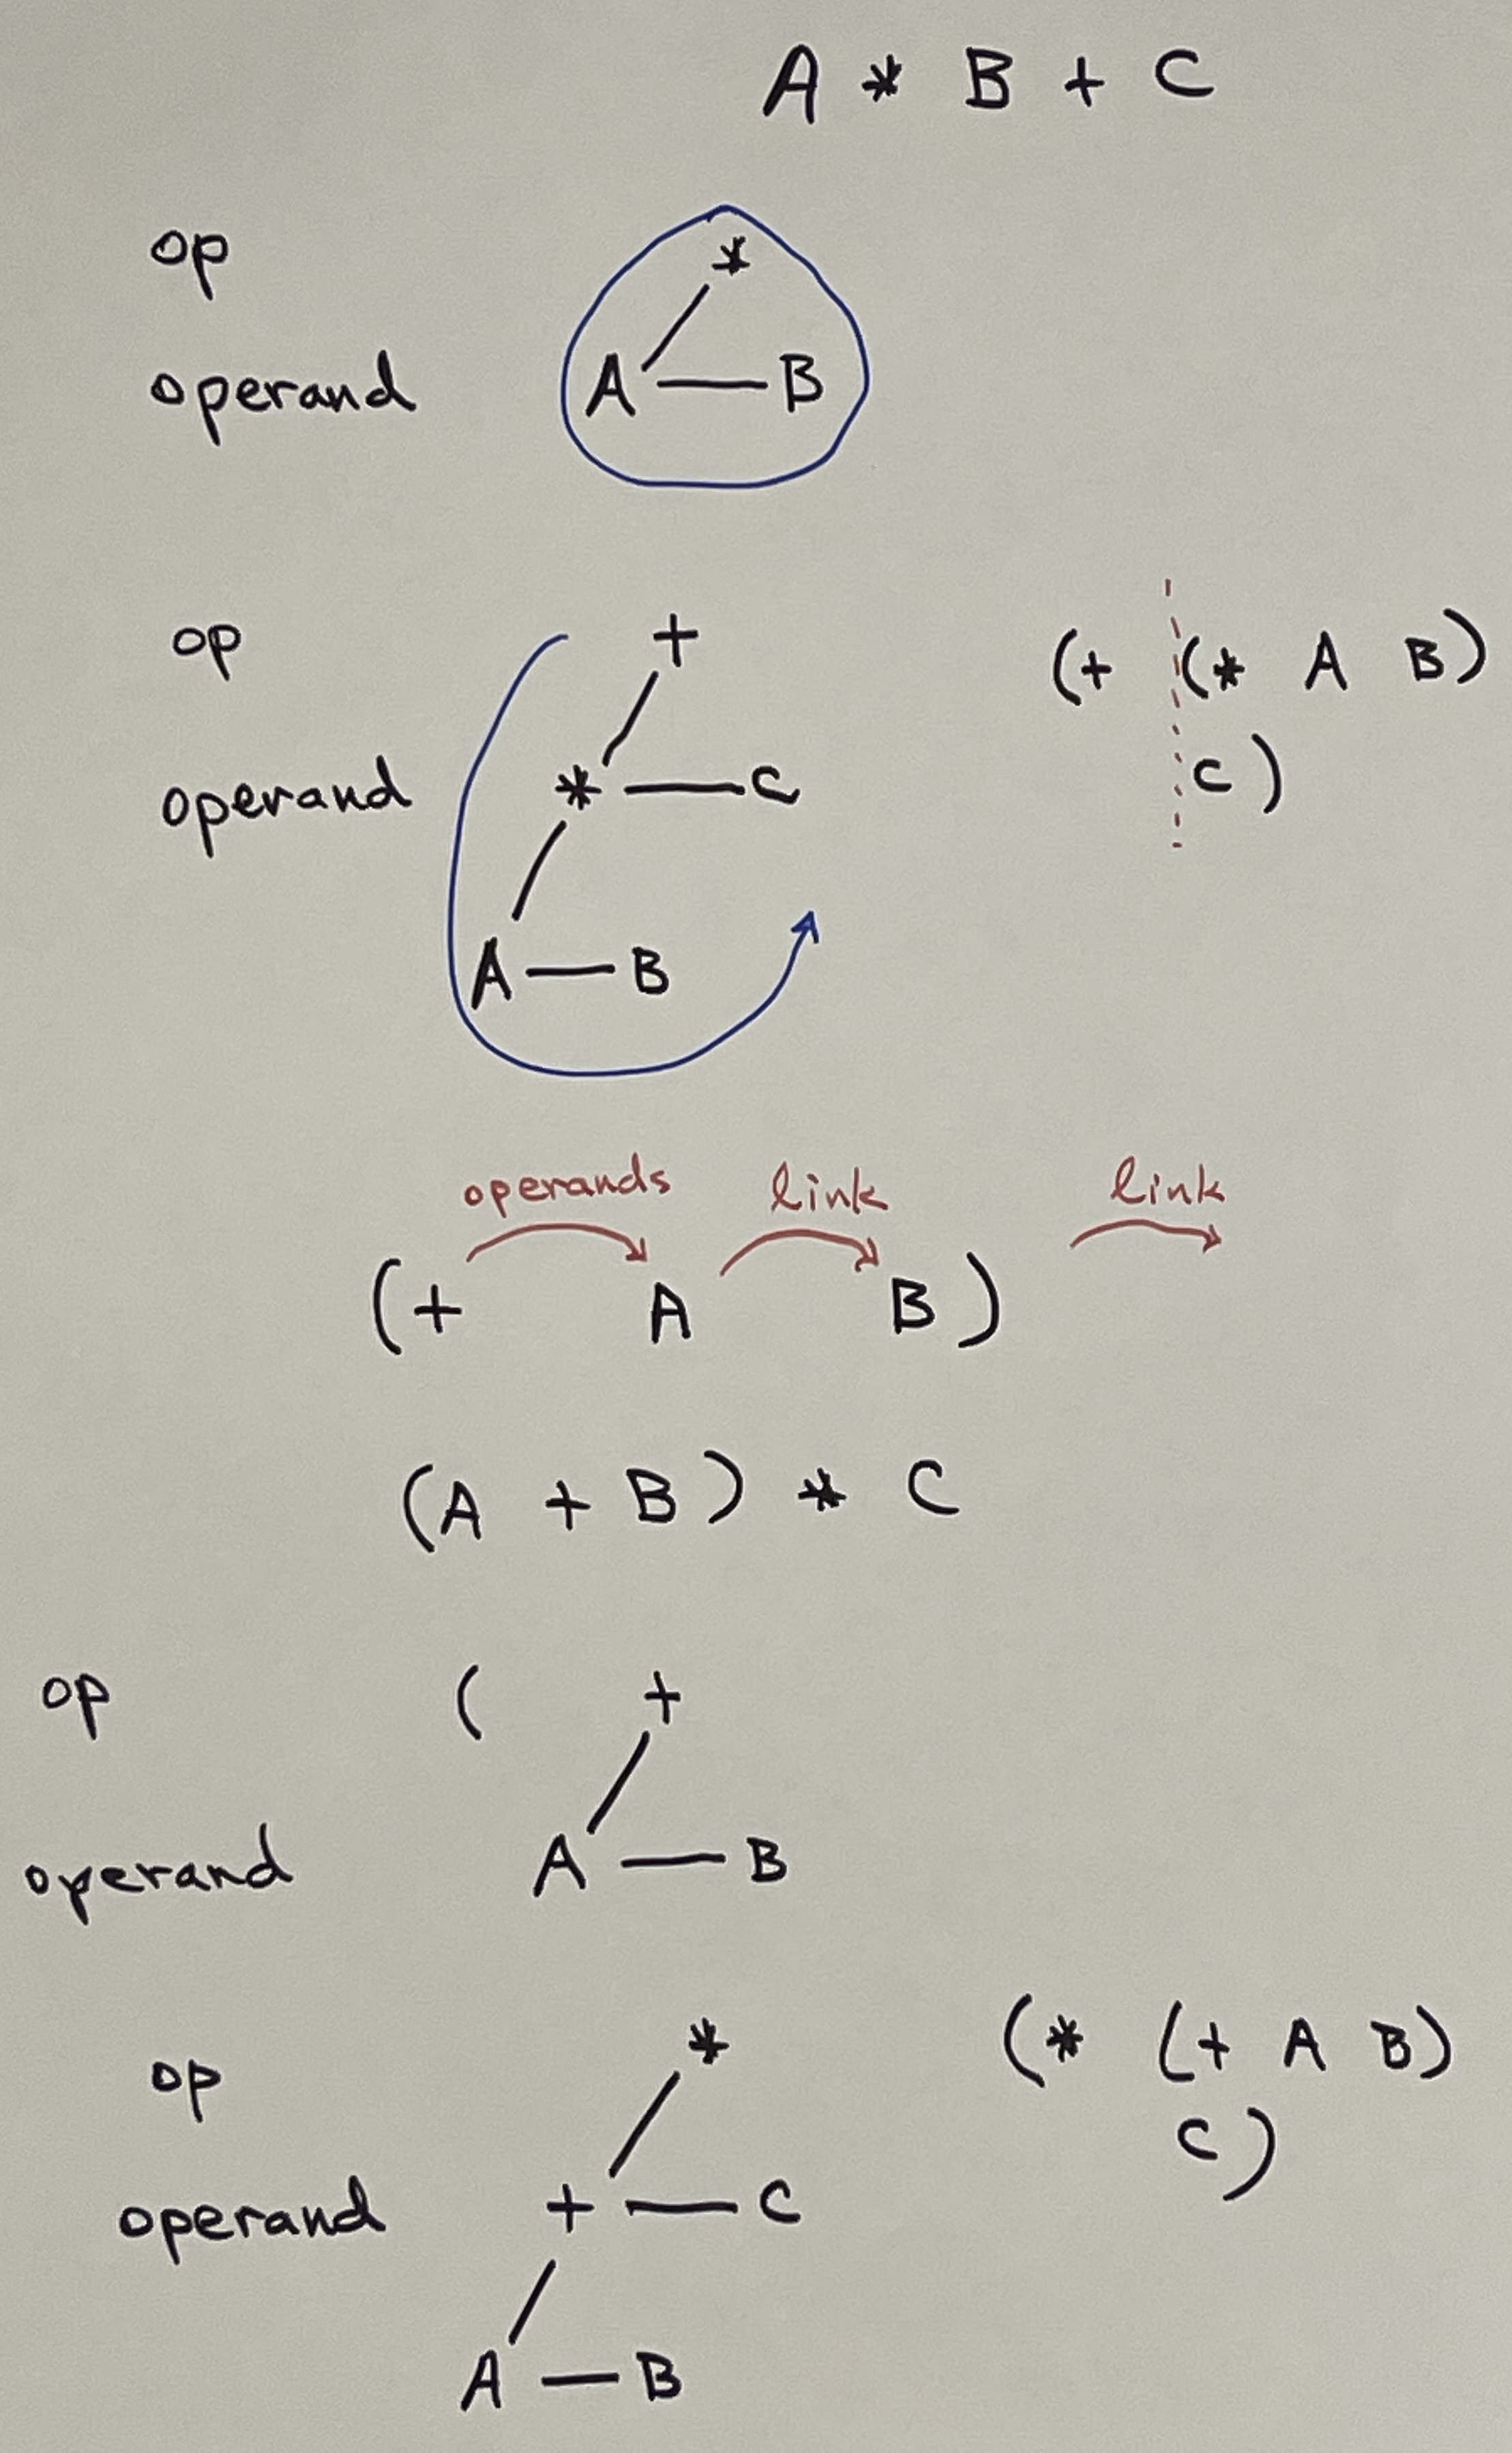 A * B + C
op *
operand A B
op + (+ (* A B)
operand * C C)
A B
operands link link
(+ A B)
(A + B) * C
op ( +
operand A B
op * (* (+ A B)
operand + C C)
A B